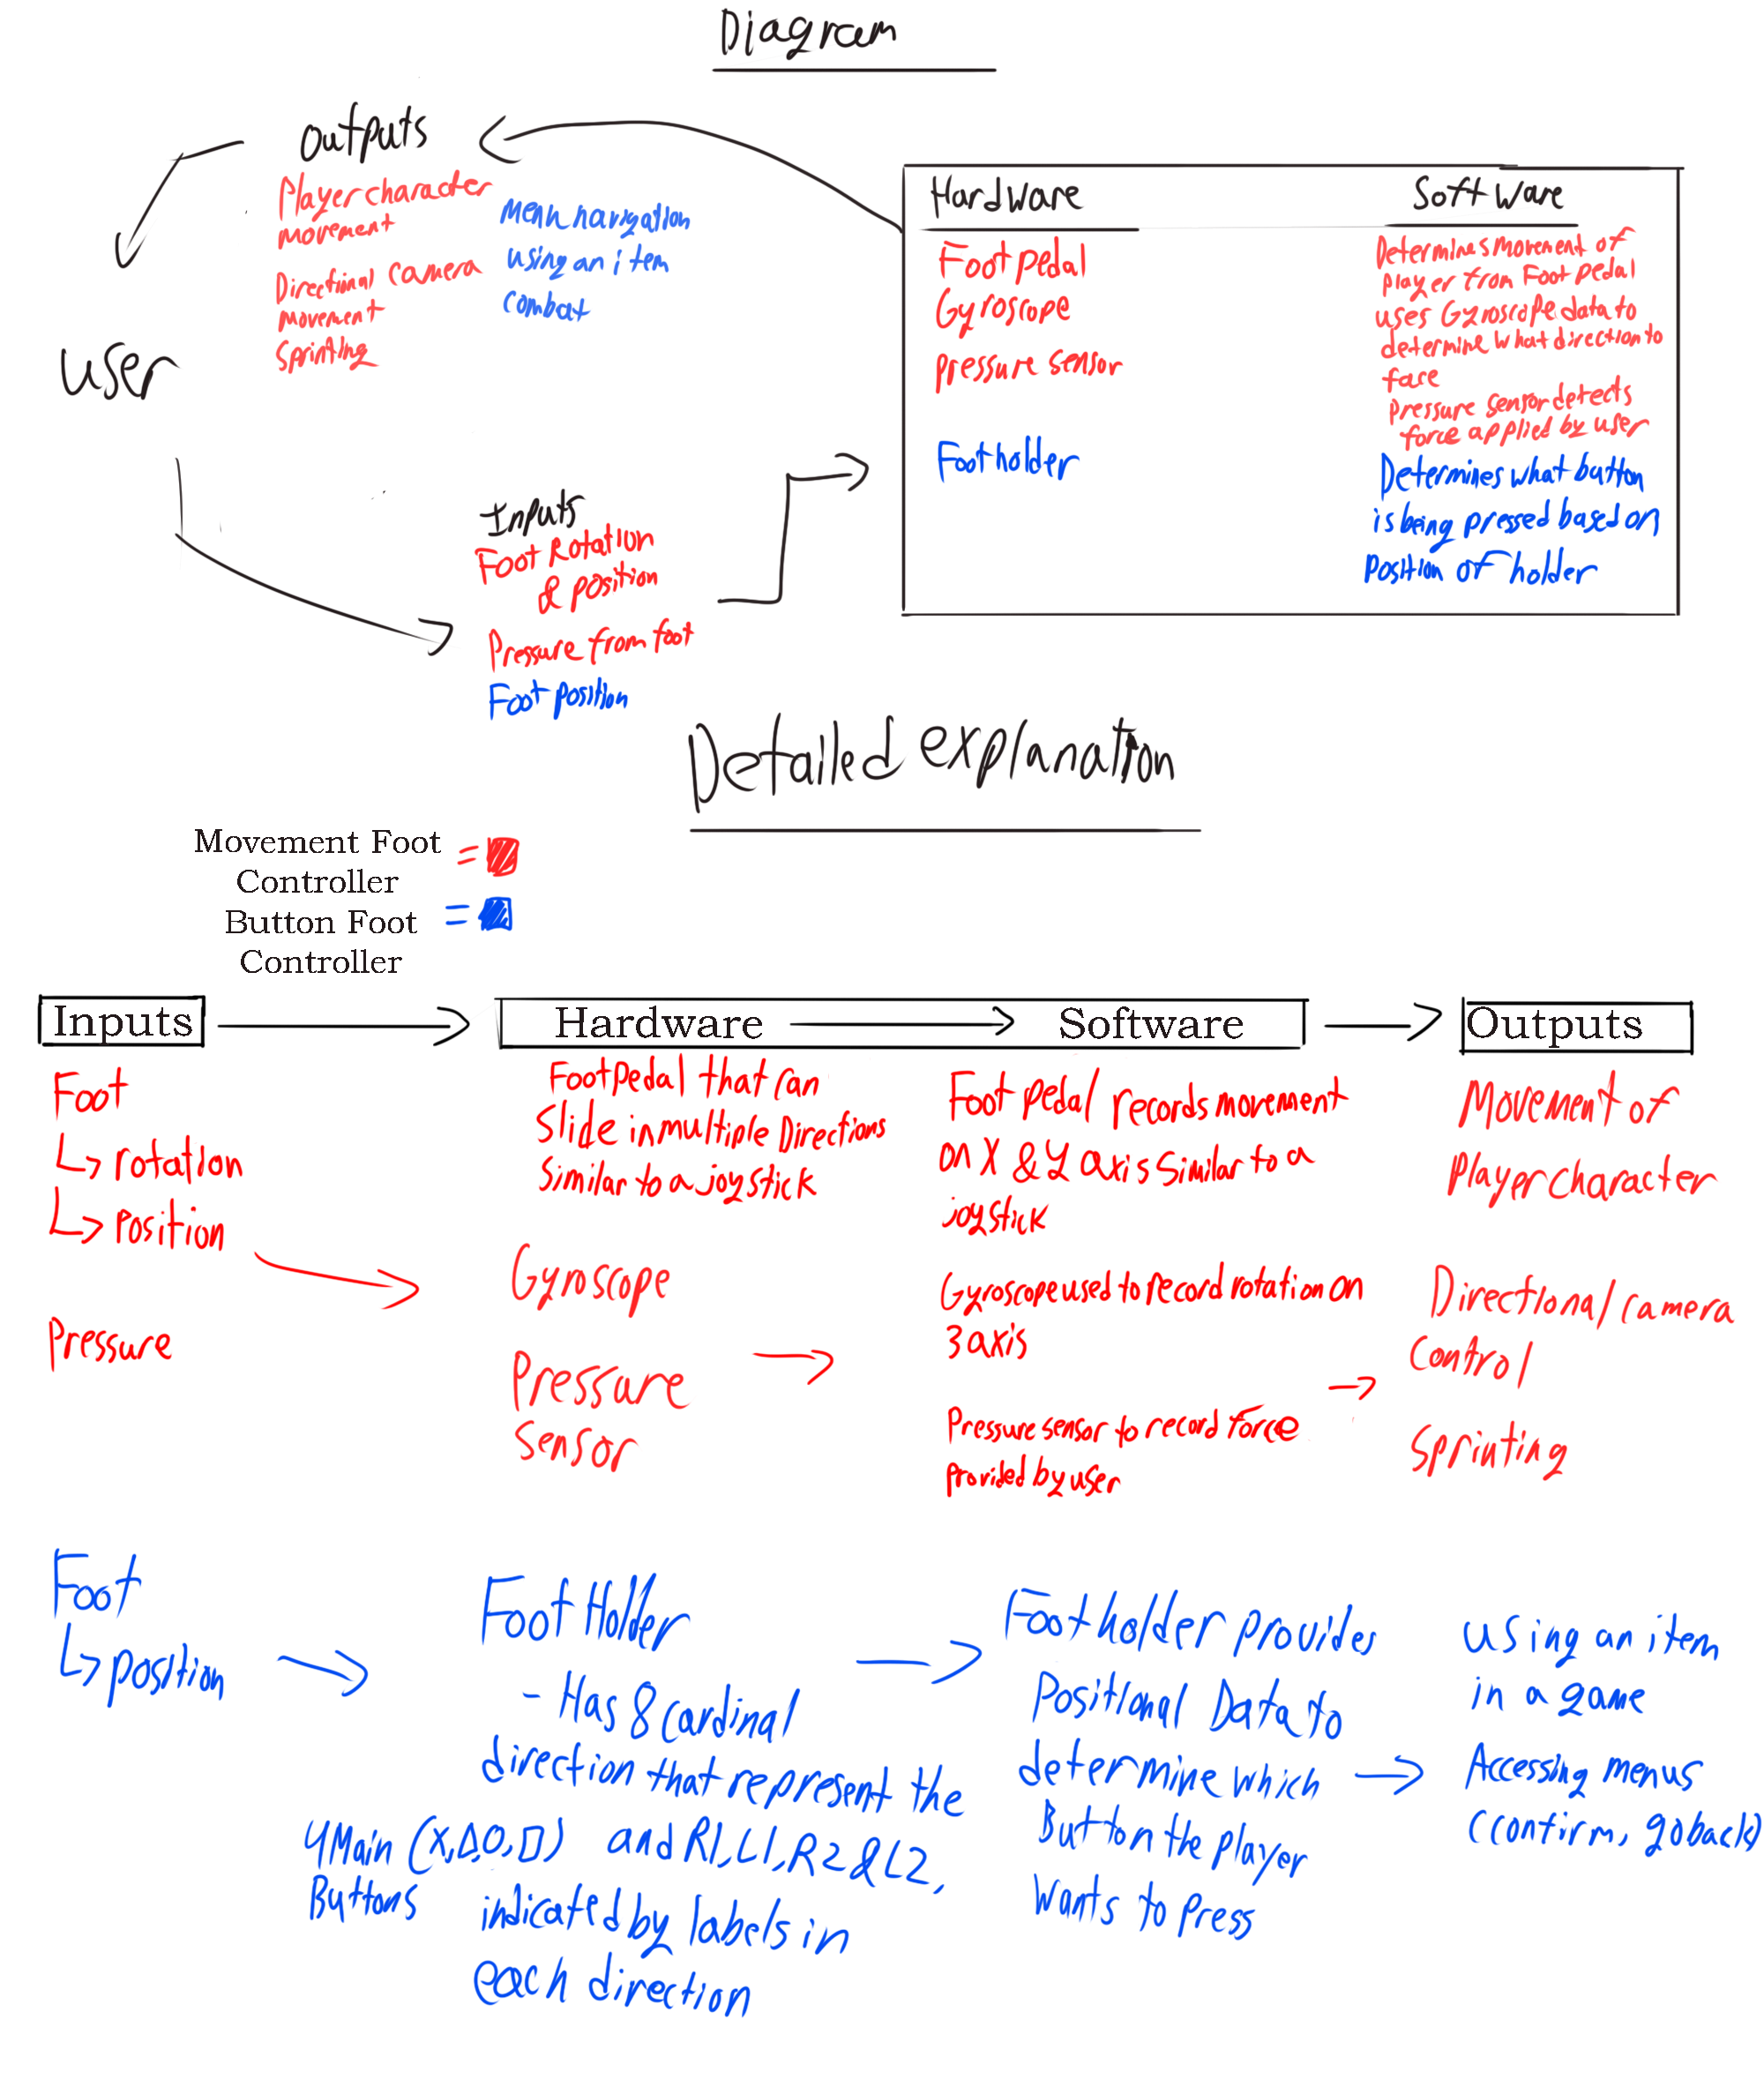 Diagram
Outputs
Player character
movement
Directional camera
movement
Sprinting
Menu navigation
using an item
combat
user
Inputs
Foot Rotation
& position
Pressure from foot
Foot position
Hardware
Foot pedal
Gyroscope
pressure sensor
Foot holder
Software
Determines movement of
player from Foot pedal
uses Gyroscope data to
determine what direction to
face
Pressure sensor detects
force applied by user
Determines what button
is being pressed based on
position of holder
Detailed explanation
Movement Foot
Controller
=
Button Foot
Controller
=
Inputs
Hardware
Software
Outputs
Foot
rotation
position
Pressure
Foot Pedal that can
Slide in multiple Directions
similar to a joystick
Gyroscope
Pressure
Sensor
Foot pedal records movement
on X & Y axis similar to a
joystick
Gyroscope used to record rotation on
3 axis
Pressure sensor to record force
provided by user
Movement of
Player character
Directional camera
control
Sprinting
Foot
position
Foot Holder
- Has 8 cardinal
direction that represent the
4 Main (X, Δ, O, □) and R1, L1, R2 & L2,
Buttons indicated by labels in
each direction
Foot holder provides
Positional Data to
determine which
Button the player
wants to press
using an item
in a game
Accessing menus
(confirm, go back)